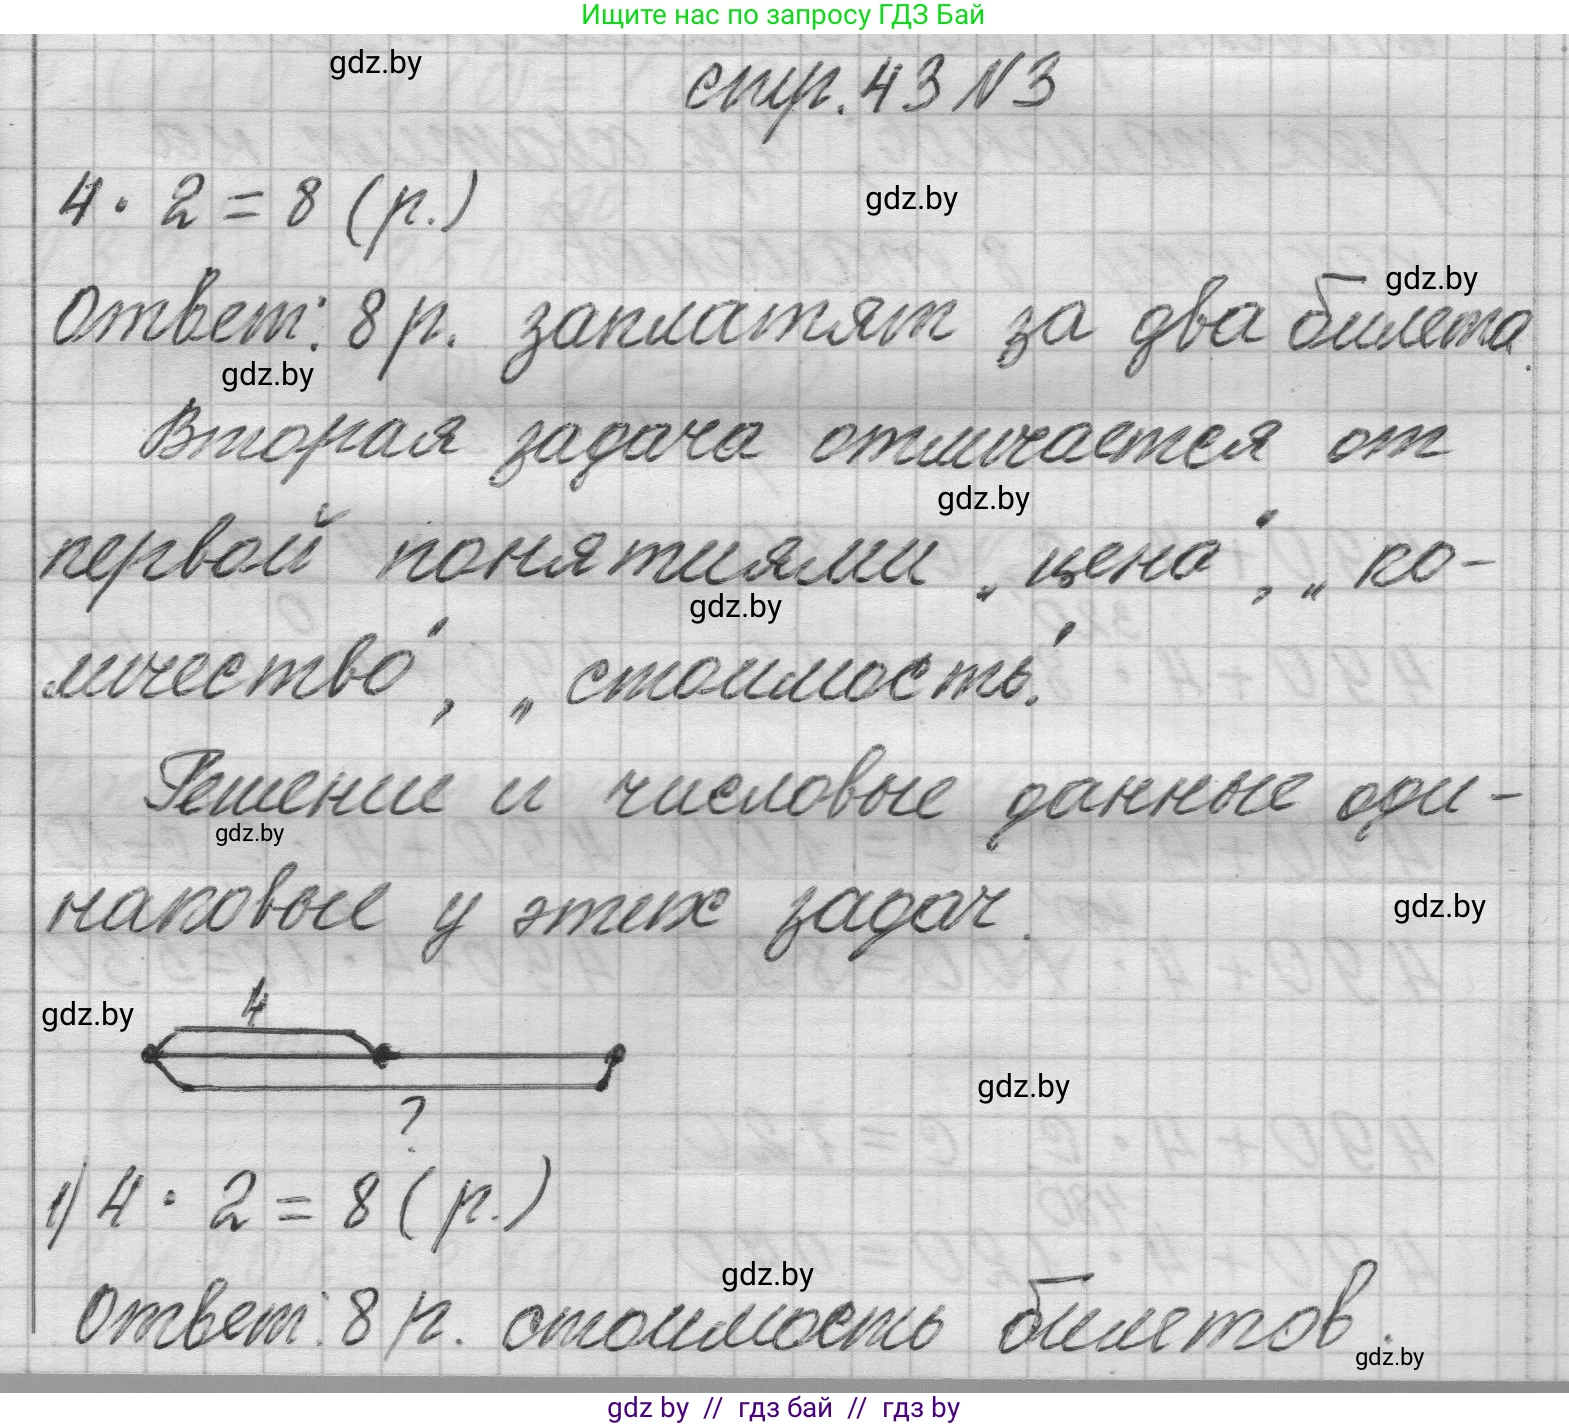 Ищите нас по запросу ГДЗ Бай
gdz.by
стр. 43 N 3
4 · 2 = 8 (р.)
gdz.by
gdz.by
Ответ: 8 р. заплатят за два билета.
gdz.by
Вторая задача отличается от
gdz.by
первой понятиями „цена“, „ко-
gdz.by
личество“, „стоимость“.
Решение и числовые данные оди-
gdz.by
наковые у этих задач.
gdz.by
4
gdz.by
gdz.by
?
1) 4 · 2 = 8 (р.)
gdz.by
Ответ: 8 р. стоимость билетов.
gdz.by
gdz by // гдз бай // гдз by